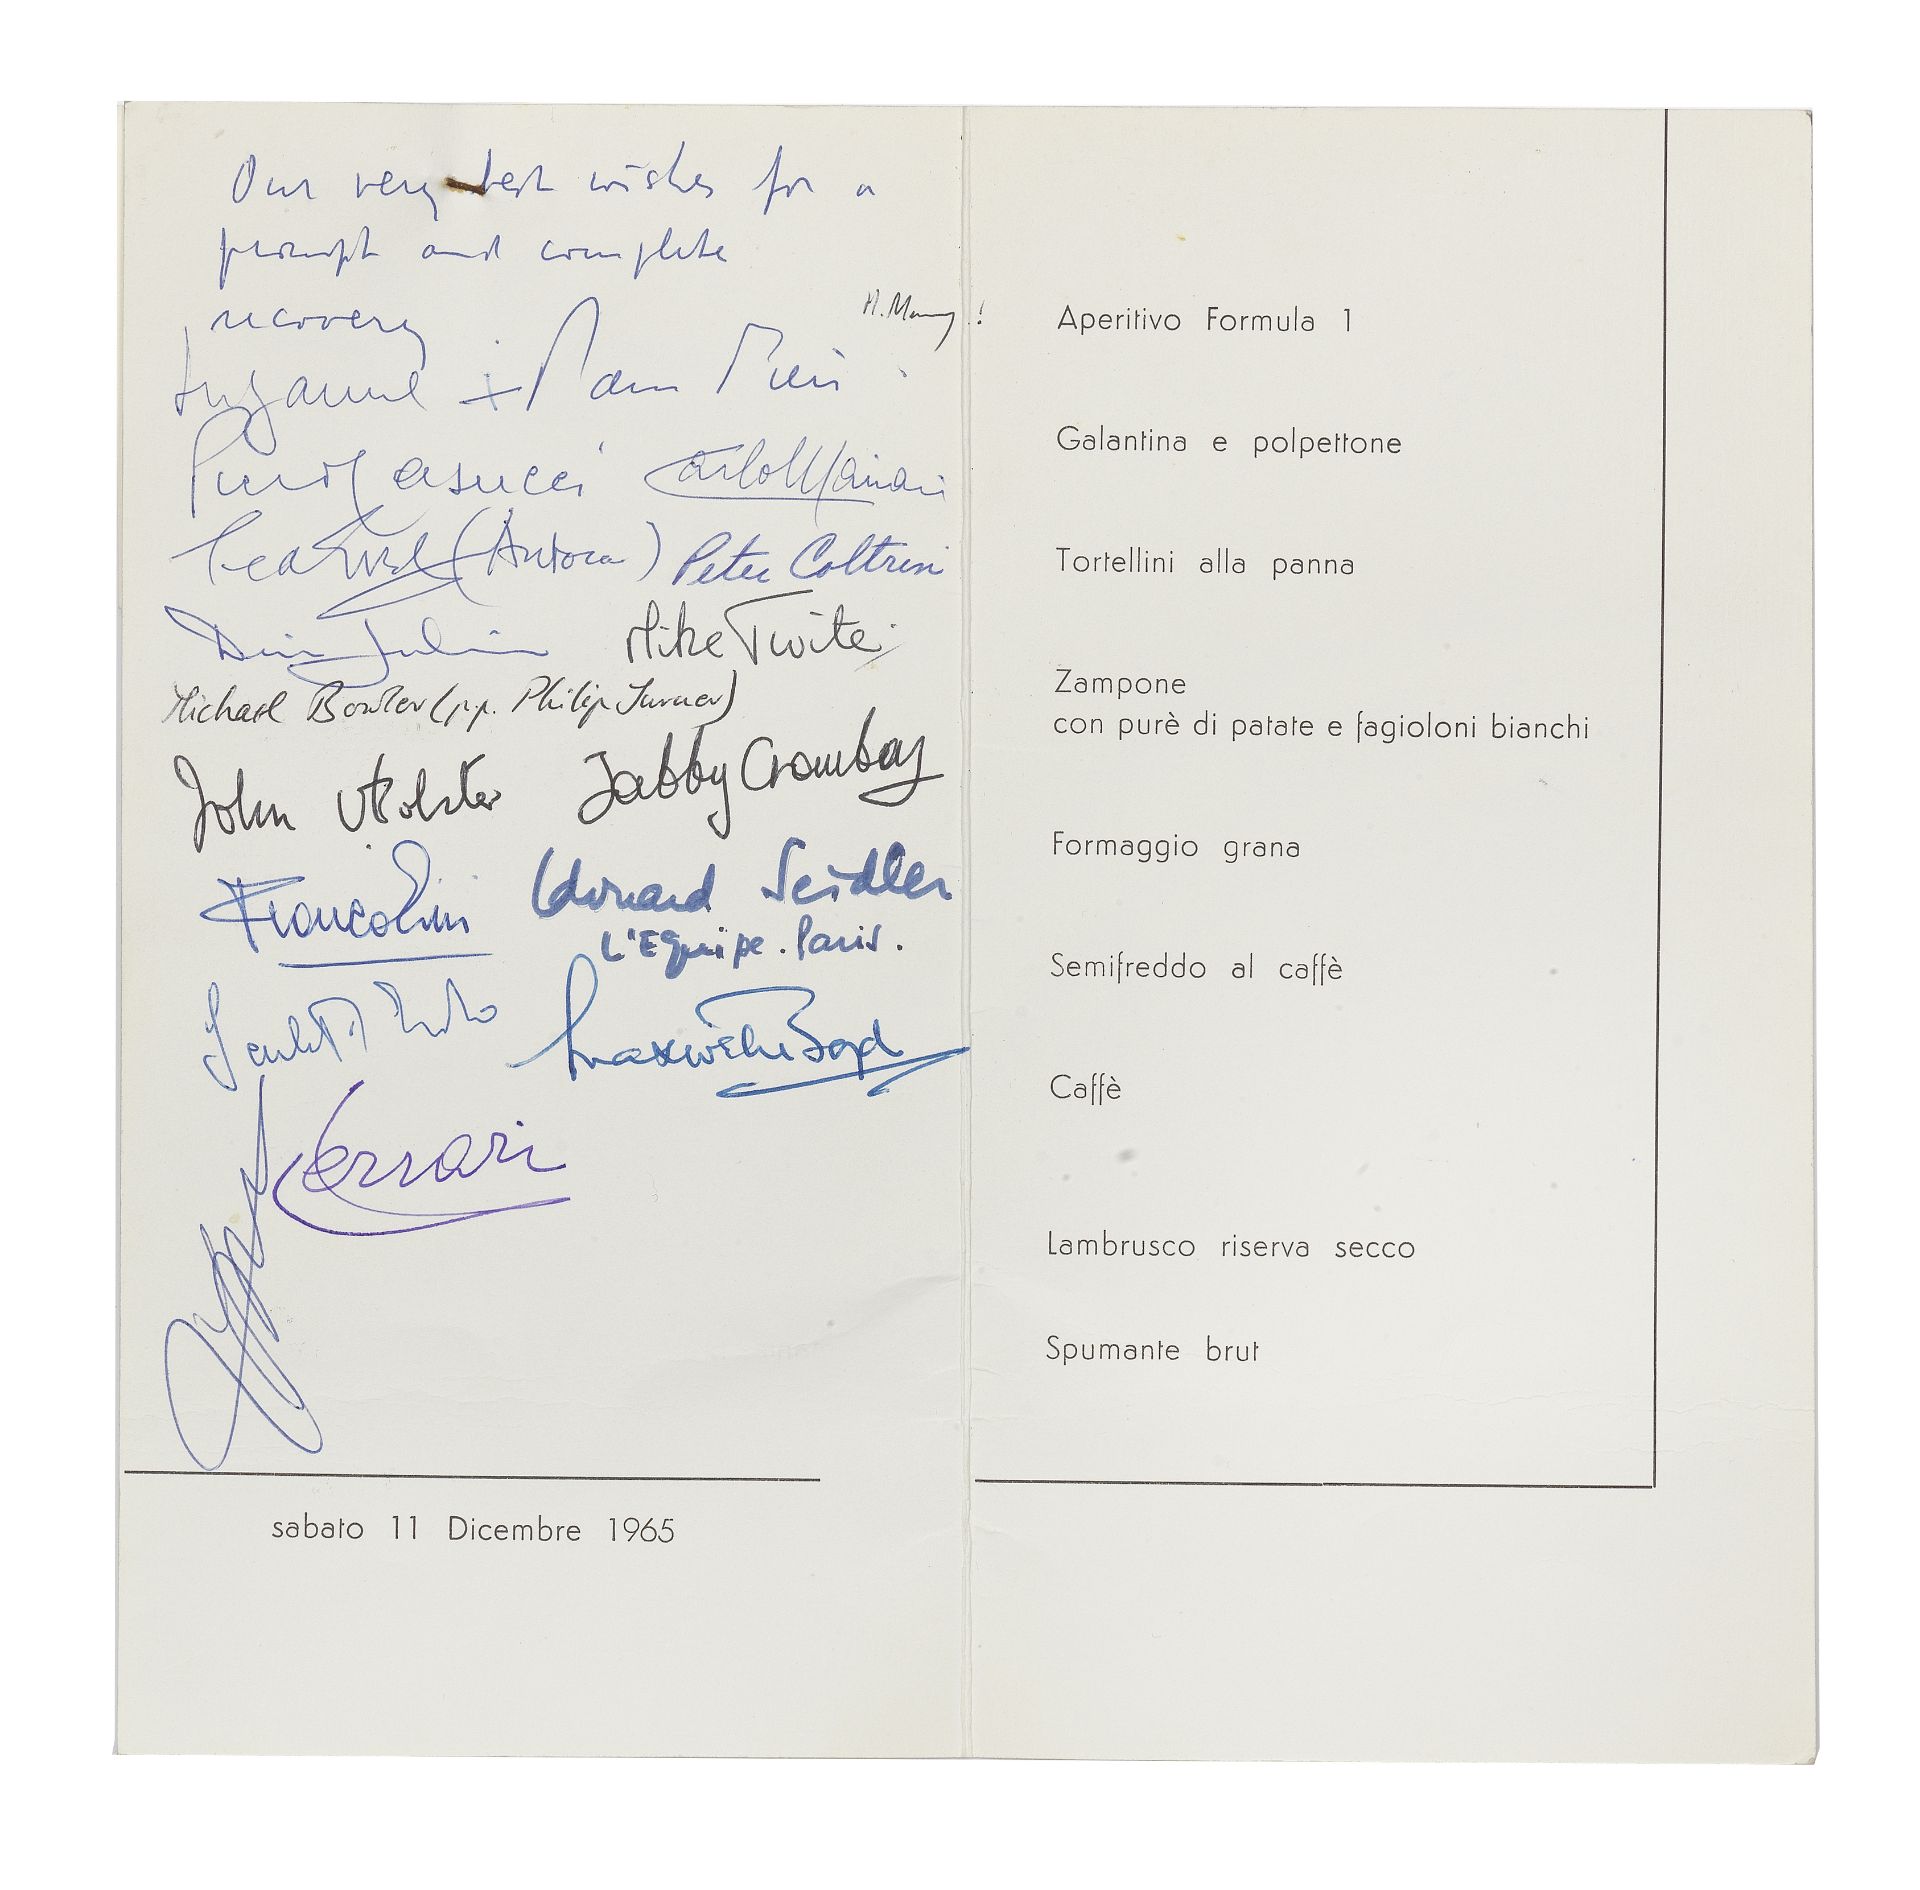 Our very best wishes for a
prompt and complete
recovery
Suzanne +
Casucci Carlo
(Autocar) Peter Coltrin
Mike Twite
Michael Bowler (pp. Philip Turner)
John Jabby Crombac
Francolini Edouard Seidler
L'Equipe. Paris.
Maxwell Boyd
Ferrari
sabato 11 Dicembre 1965
Aperitivo Formula 1
Galantina e polpettone
Tortellini alla panna
Zampone
con purè di patate e fagioloni bianchi
Formaggio grana
Semifreddo al caffè
Caffè
Lambrusco riserva secco
Spumante brut